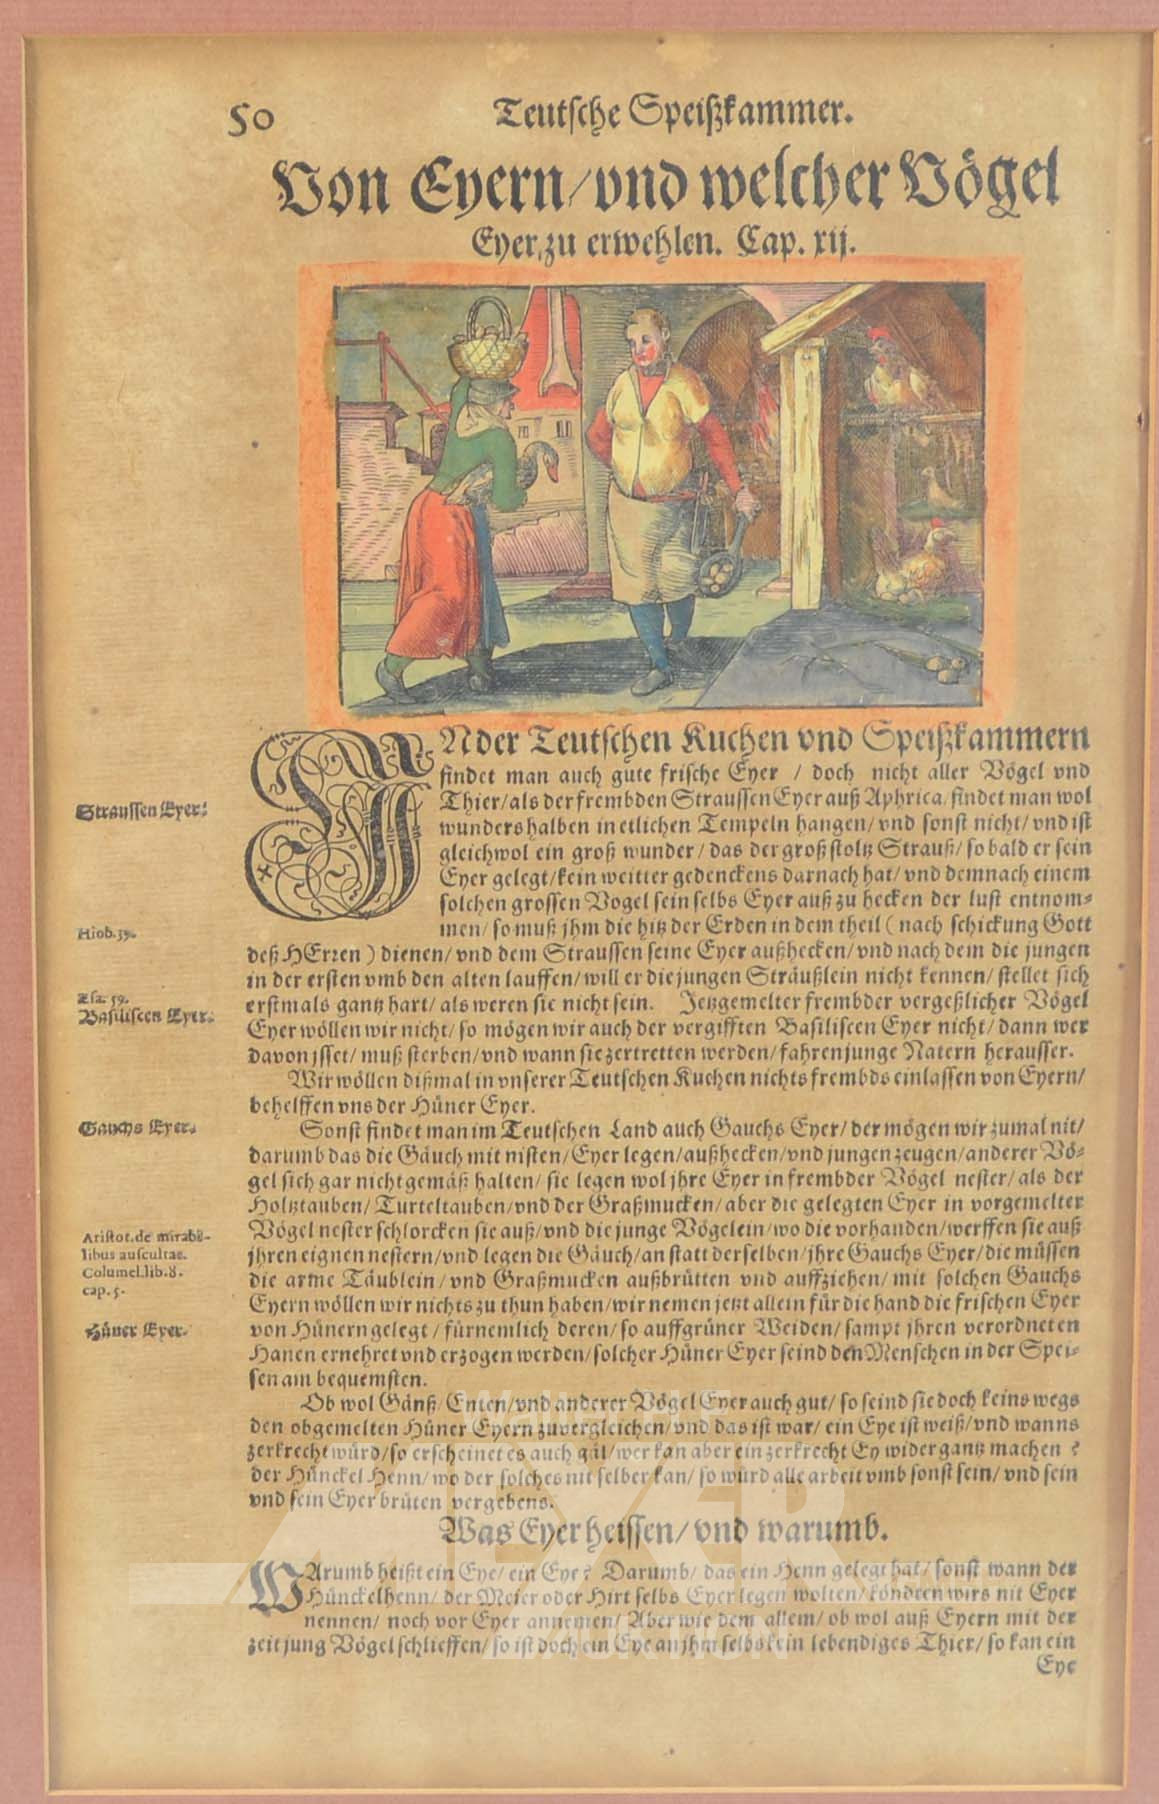 50
Teutsche Speißkammer.
Von Eyern/vnd welcher Vögel
Eyer zu erwehlen. Cap. xij.
INder Teutschen Kuchen vnd Speißkammern
findet man auch gute frische Eyer / doch nicht aller Vögel vnd
Straussen Eyer.
Thier/als der frembden Straussen Eyer auß Aphrica/findet man wol
wunders halben in etlichen Tempeln hangen/vnd sonst nicht/vnd ist
gleichwol ein groß wunder/das der groß stoltz Strauß/so bald er sein
Eyer gelegt/kein weitter gedenckens darnach hat/vnd demnach einem
solchen grossen Vogel sein selbs Eyer auß zu hecken der lust entnom-
Hiob.39.
men/so muß jhm die hitz der Erden in dem theil (nach schickung Gott
deß HErren) dienen/vnd dem Straussen seine Eyer außhecken/vnd nach dem die jungen
in der ersten vmb den alten lauffen/will er die jungen Sträußlein nicht kennen/stellet sich
Esa. 59.
erstmals gantz hart/als weren sie nicht sein. Jetzgemelter frembder vergeßlicher Vögel
Basiliscen Eyer.
Eyer wöllen wir nicht/so mögen wir auch der vergifften Basiliscen Eyer nicht/dann wer
davon jsset/muß sterben/vnd wann sie zertretten werden/fahren junge Natern herausser.
Wir wöllen dißmal in vnserer Teutschen Kuchen nichts frembds einlassen von Eyern/
behelffen vns der Hüner Eyer.
Gauchs Eyer.
Sonst findet man im Teutschen Land auch Gauchs Eyer/der mögen wir zumal nit/
darumb das die Gäuch mit nisten/Eyer legen/außhecken/vnd jungen zeugen/anderer Vö-
gel sich gar nicht gemäß halten/sie legen wol jhre Eyer in frembder Vögel nester/als der
Holtztauben/Turteltauben/vnd der Graßmucken/aber die gelegten Eyer in vorgemelter
Aristot. de mirabi-
Vögel nester schlorcken sie auß/vnd die junge Vögelein/wo die vorhanden/werffen sie auß
libus auscultat.
jhren eignen nestern/vnd legen die Gäuch/an statt derselben/jhre Gauchs Eyer/die müssen
Columel. lib. 8.
die arme Täublein/vnd Graßmucken außbrütten vnd auffziehen/mit solchen Gauchs
cap. 5.
Eyern wöllen wir nichts zu thun haben/wir nemen jetzt allein für die hand die frischen Eyer
Hüner Eyer.
von Hünern gelegt/fürnemlich deren/so auff grüner Weiden/sampt jhren verordneten
Hanen ernehret vnd erzogen werden/solcher Hüner Eyer seind den Menschen in der Spei-
sen am bequemsten.
Ob wol Gänß/Enten/vnd anderer Vögel Eyer auch gut/so seind sie doch keins wegs
den obgemelten Hüner Eyern zuvergleichen/vnd das ist war/ein Eye ist weiß/vnd wanns
zerkrecht würd/so erscheinet es auch gäl/wer kan aber ein zerkrecht Ey wider gantz machen?
der Hünckel Henn/wo der solches nit selber kan/so würd alle arbeit vmb sonst sein/vnd sein
vnd sein Eyer brüten vergebens.
Was Eyer heissen/vnd warumb.
WArumb heißt ein Eye/ein Eye? Darumb/das ein Henn gelegt hat/sonst wann der
Hünckelhenn/der Meier oder Hirt selbs Eyer legen wolten/köndten wirs nit Eyer
nennen/noch vor Eyer annemen/Aber wie dem allem/ob wol auß Eyern mit der
zeit jung Vögel schlieffen/so ist doch ein Eye an jhm selbs kein lebendiges Thier/so kan ein
Eye
MEYER
AUKTION